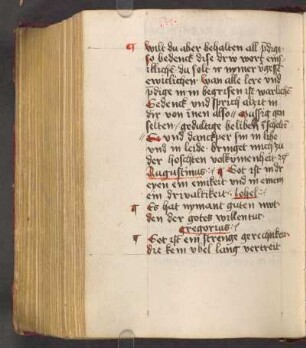 wilt du aber behalten all pdige
so bedenck dise drw wort ein
iklichē du solt ir nymer vgess
ewiclichen wan alle lere und
pdige in in begrifen ist warlichē
Gedenck und sprich alzit in
dir von inen also
selten gedultige beliben
und danckper im liebe
und in leide bringet mich zu
der hochsten volkumenheit
Augustinus Got ist in dr
eyen ein einikeit und in einem
ein drivaltikeit
Es hat nymant guten mut
den der gotes willen tut
Gregorius
Got ist ein strenge gerechtiker
die kein ubel lang vertreit